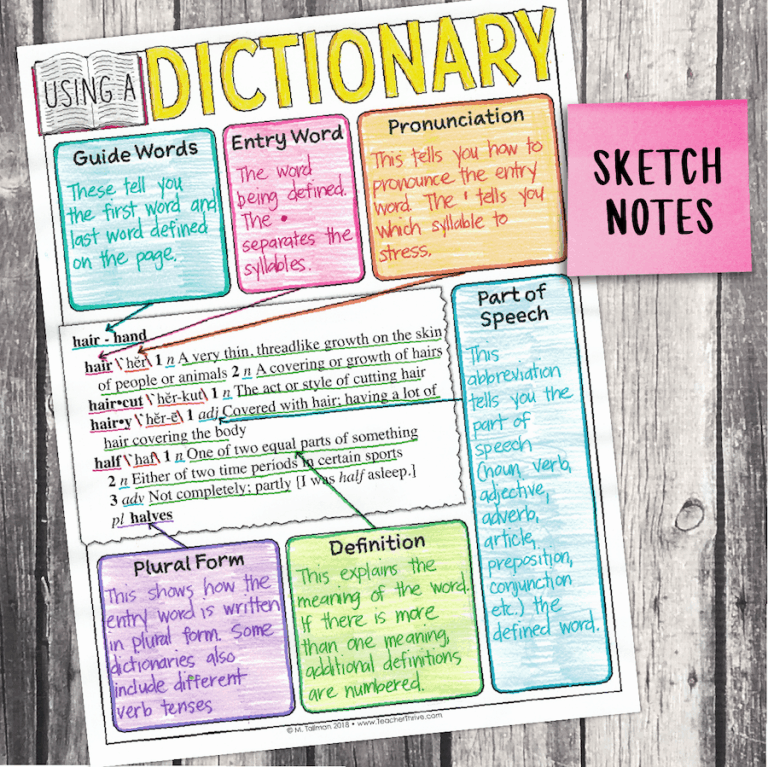 USING A DICTIONARY
Guide Words
These tell you
the first word and
last word defined
on the page.
Entry Word
The word
being defined.
The •
separates the
syllables.
Pronunciation
This tells you how to
pronounce the entry
word. The ' tells you
which syllable to
stress.
SKETCH
NOTES
hair - hand
hair \'hĕr\ 1 n A very thin, threadlike growth on the skin
of people or animals 2 n A covering or growth of hairs
hair•cut \'hĕr-kut\ 1 n The act or style of cutting hair
hair•y \'hĕr-ē\ 1 adj Covered with hair; having a lot of
hair covering the body
half \'haf\ 1 n One of two equal parts of something
2 n Either of two time periods in certain sports
3 adv Not completely; partly [I was half asleep.]
pl halves
Part of
Speech
This
abbreviation
tells you the
part of
speech
(noun, verb,
adjective,
adverb,
article,
preposition,
conjunction
etc.) the
defined word.
Plural Form
This shows how the
entry word is written
in plural form. Some
dictionaries also
include different
verb tenses
Definition
This explains the
meaning of the word.
If there is more
than one meaning,
additional definitions
are numbered.
© M. Tallman 2018 • www.TeacherThrive.com